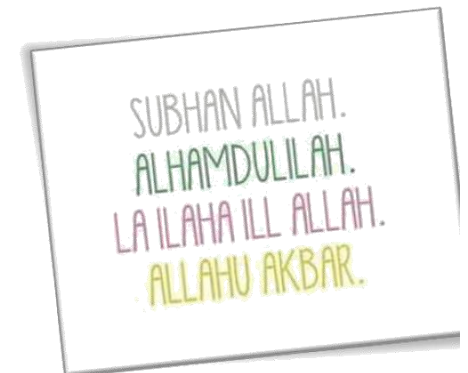 SUBHAN ALLAH.
ALHAMDULILAH.
LA ILAHA ILL ALLAH.
ALLAHU AKBAR.